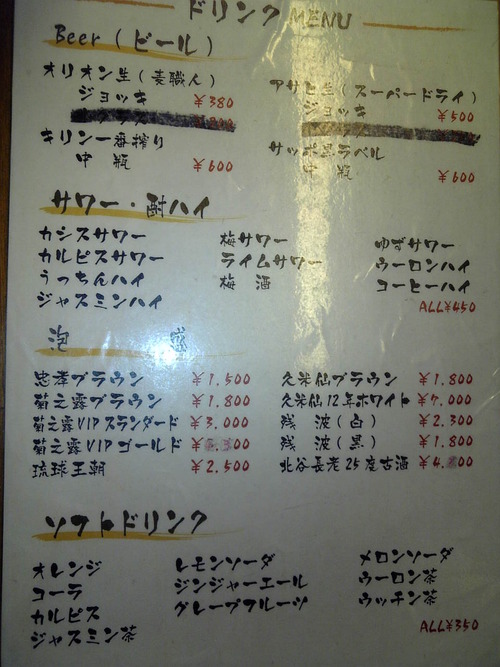 ドリンクMENU
Beer(ビール)
オリオン生(麦職人)
ジョッキ ¥380
キリン一番搾り
中瓶 ¥600
アサヒ生(スーパードライ)
ジョッキ ¥500
サッポロ黒ラベル
中瓶 ¥600
サワー・酎ハイ
カシスサワー 梅サワー ゆずサワー
カルピスサワー ライムサワー ウーロンハイ
うっちんハイ 梅酒 コーヒーハイ
ジャスミンハイ ALL¥450
泡盛
忠孝ブラウン ¥1.500 久米仙ブラウン ¥1.800
菊之露ブラウン ¥1.800 久米仙12年ホワイト ¥4.000
菊之露VIPスタンダード ¥3.000 残波(白) ¥2.300
菊之露VIPゴールド 残波(黒) ¥1.800
琉球王朝 ¥2.500 北谷長老25度古酒
ソフトドリンク
オレンジ レモンソーダ メロンソーダ
コーラ ジンジャーエール ウーロン茶
カルピス グレープフルーツ ウッチン茶
ジャスミン茶 ALL¥350